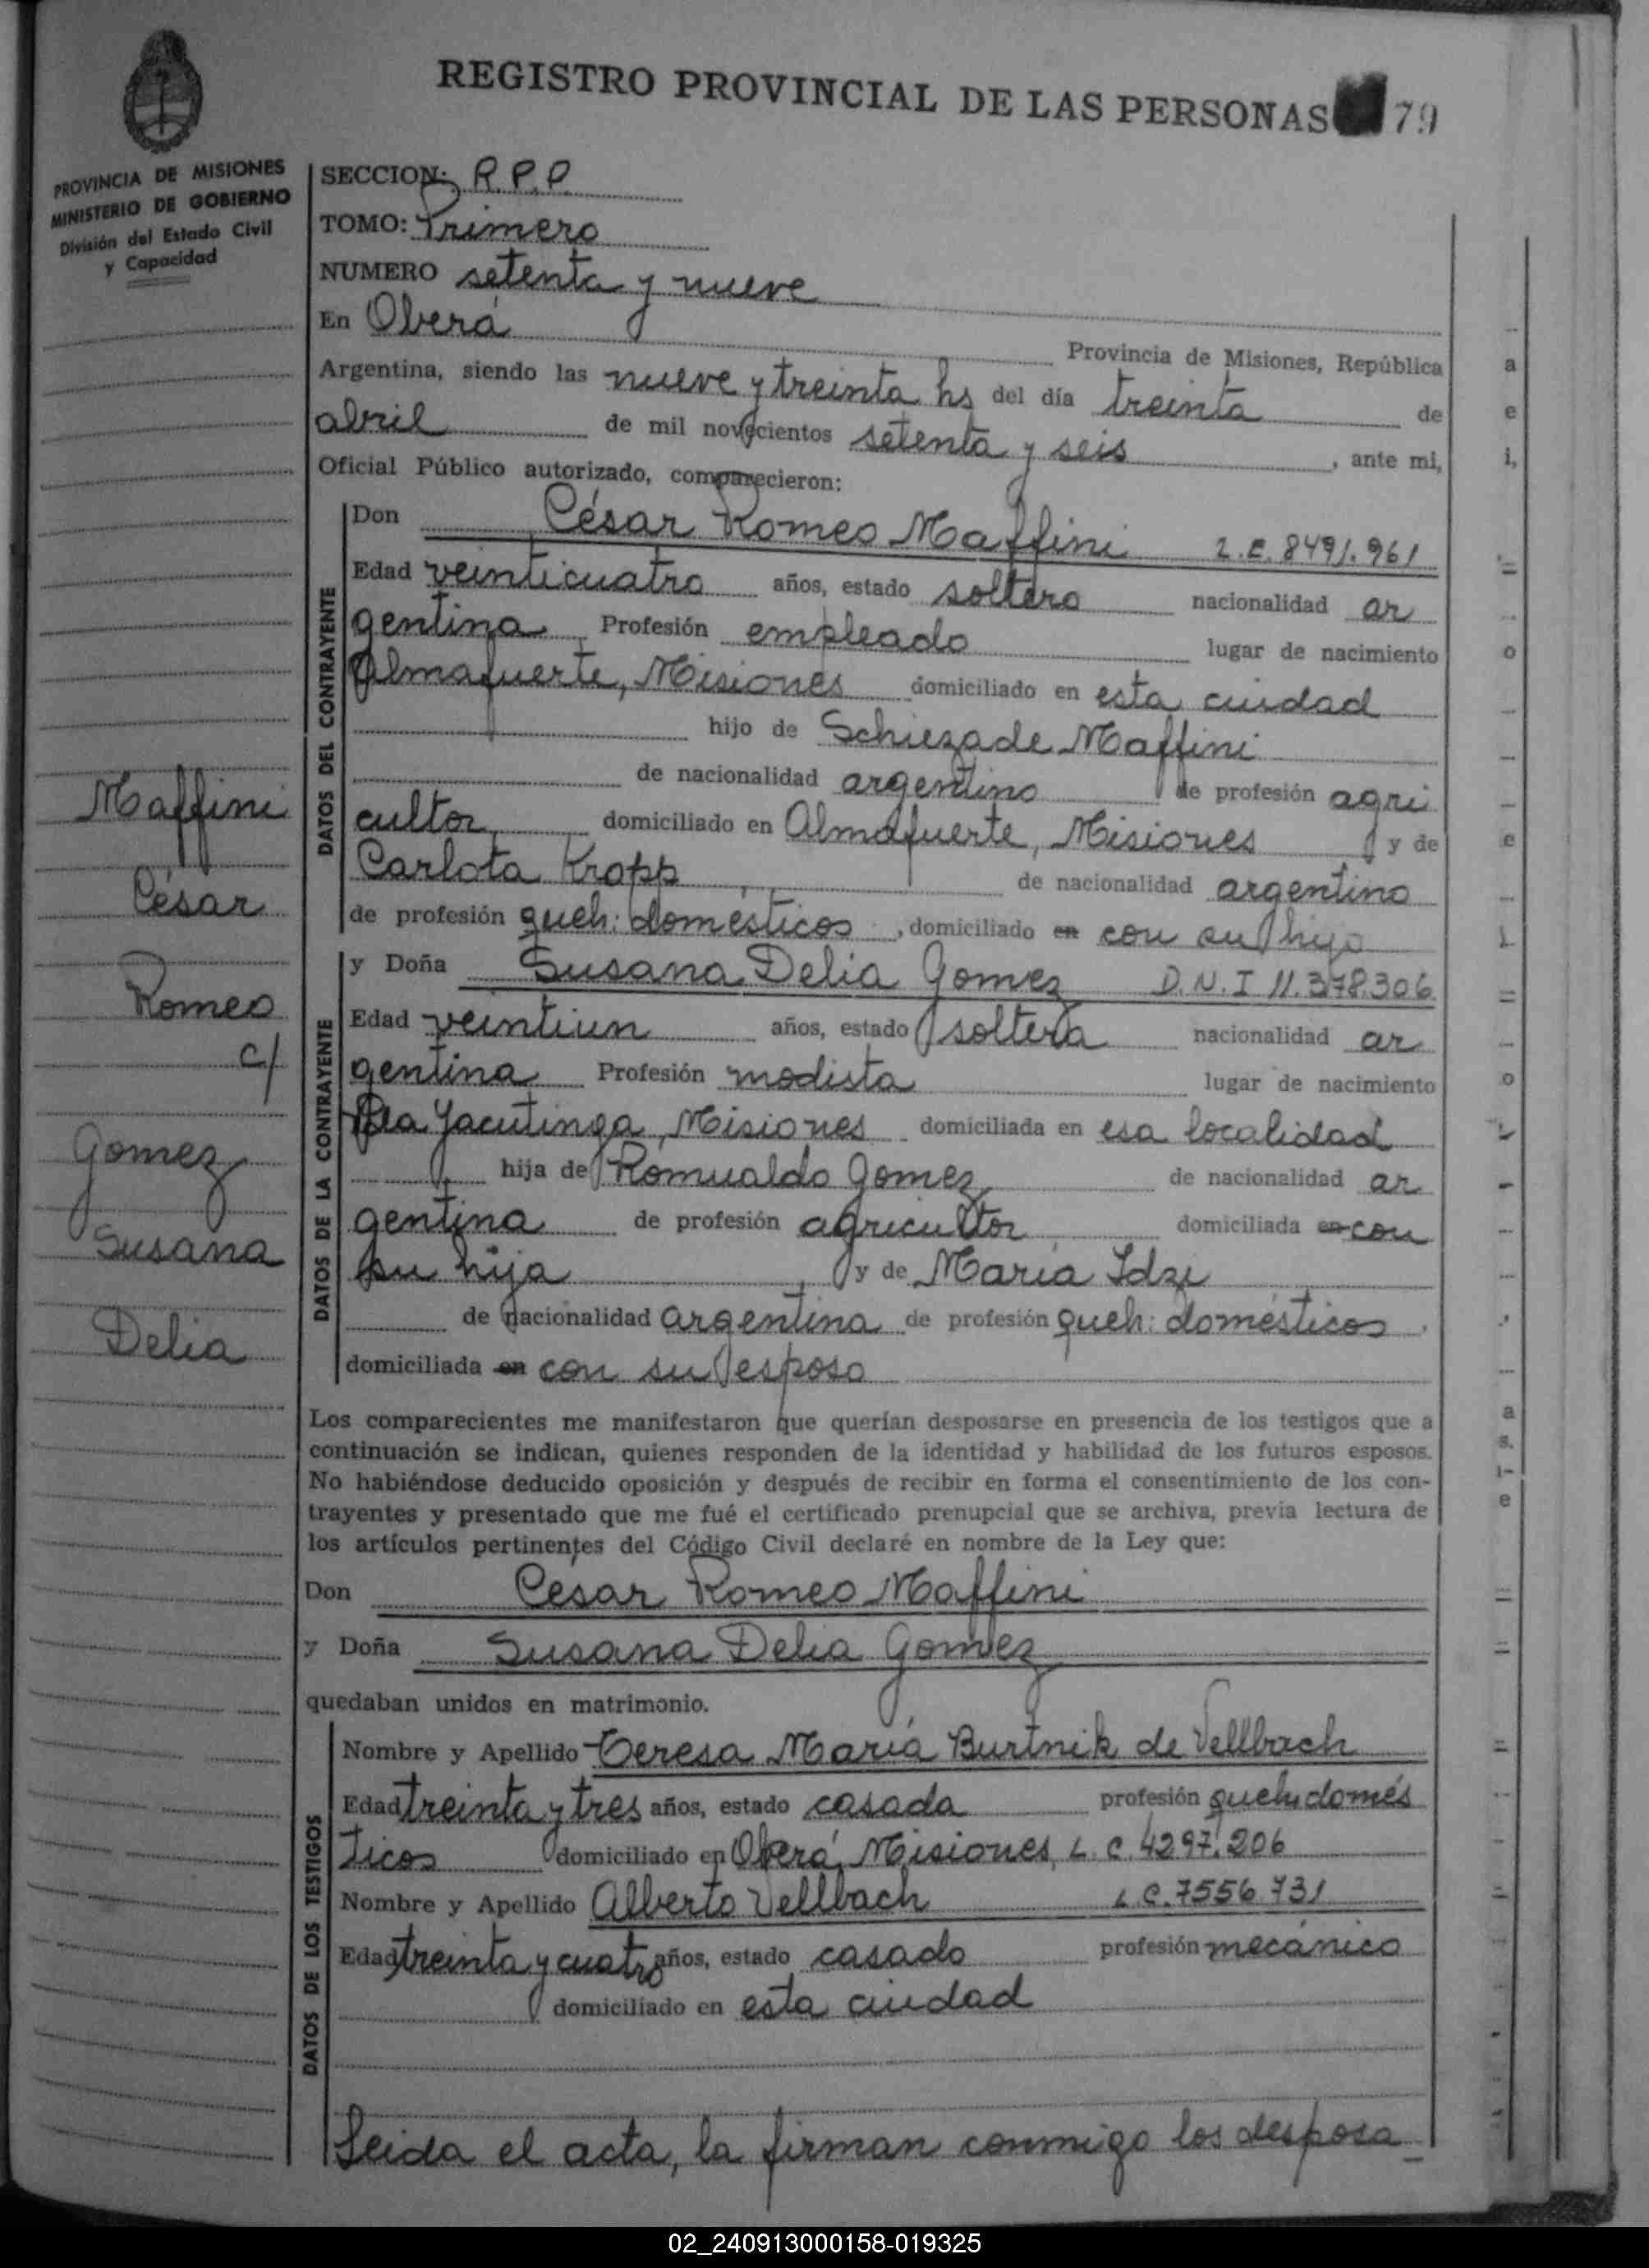 REGISTRO PROVINCIAL DE LAS PERSONAS 79
PROVINCIA DE MISIONES
MINISTERIO DE GOBIERNO
División del Estado Civil
y Capacidad
SECCION: R.P.P.
TOMO: Primero
NUMERO setenta y nueve
En Oberá Provincia de Misiones, República
Argentina, siendo las nueve y treinta hs del día treinta de
abril de mil novecientos setenta y seis, ante mi,
Oficial Público autorizado, comparecieron:
DATOS DEL CONTRAYENTE
Don César Romeo Maffini L.E. 8491.961
Edad veinticuatro años, estado soltero nacionalidad ar
gentina Profesión empleado lugar de nacimiento
Almafuerte, Misiones domiciliado en esta ciudad
hijo de Schiezade Maffini
de nacionalidad argentino de profesión agri
cultor domiciliado en Almafuerte, Misiones y de
Carlota Kropp de nacionalidad argentino
de profesión queh: domésticos, domiciliado en con su hijo
DATOS DE LA CONTRAYENTE
y Doña Susana Delia Gomez D.N.I 11.378.306
Edad veintiun años, estado soltera nacionalidad ar
gentina Profesión modista lugar de nacimiento
Pla Yacutinga, Misiones domiciliada en esa localidad
hija de Romualdo Gomez de nacionalidad ar
gentina de profesión agricultor domiciliada en con
su hija y de María Idzi
de nacionalidad argentina de profesión queh: domésticos,
domiciliada en con su esposo
Maffini
César
Romeo
c/
Gomez
Susana
Delia
Los comparecientes me manifestaron que querían desposarse en presencia de los testigos que a
continuación se indican, quienes responden de la identidad y habilidad de los futuros esposos.
No habiéndose deducido oposición y después de recibir en forma el consentimiento de los con-
trayentes y presentado que me fué el certificado prenupcial que se archiva, previa lectura de
los artículos pertinentes del Código Civil declaré en nombre de la Ley que:
Don Cesar Romeo Maffini
y Doña Susana Delia Gomez
quedaban unidos en matrimonio.
DATOS DE LOS TESTIGOS
Nombre y Apellido Teresa María Burtnik de Vellbach
Edad treinta y tres años, estado casada profesión queh: domés
ticos domiciliado en Oberá, Misiones, L.C. 4297.206
Nombre y Apellido Alberto Vellbach L.E. 7556 731
Edad treinta y cuatro años, estado casado profesión mecánico
domiciliado en esta ciudad
Leida el acta, la firman conmigo los desposa
02_240913000158-019325